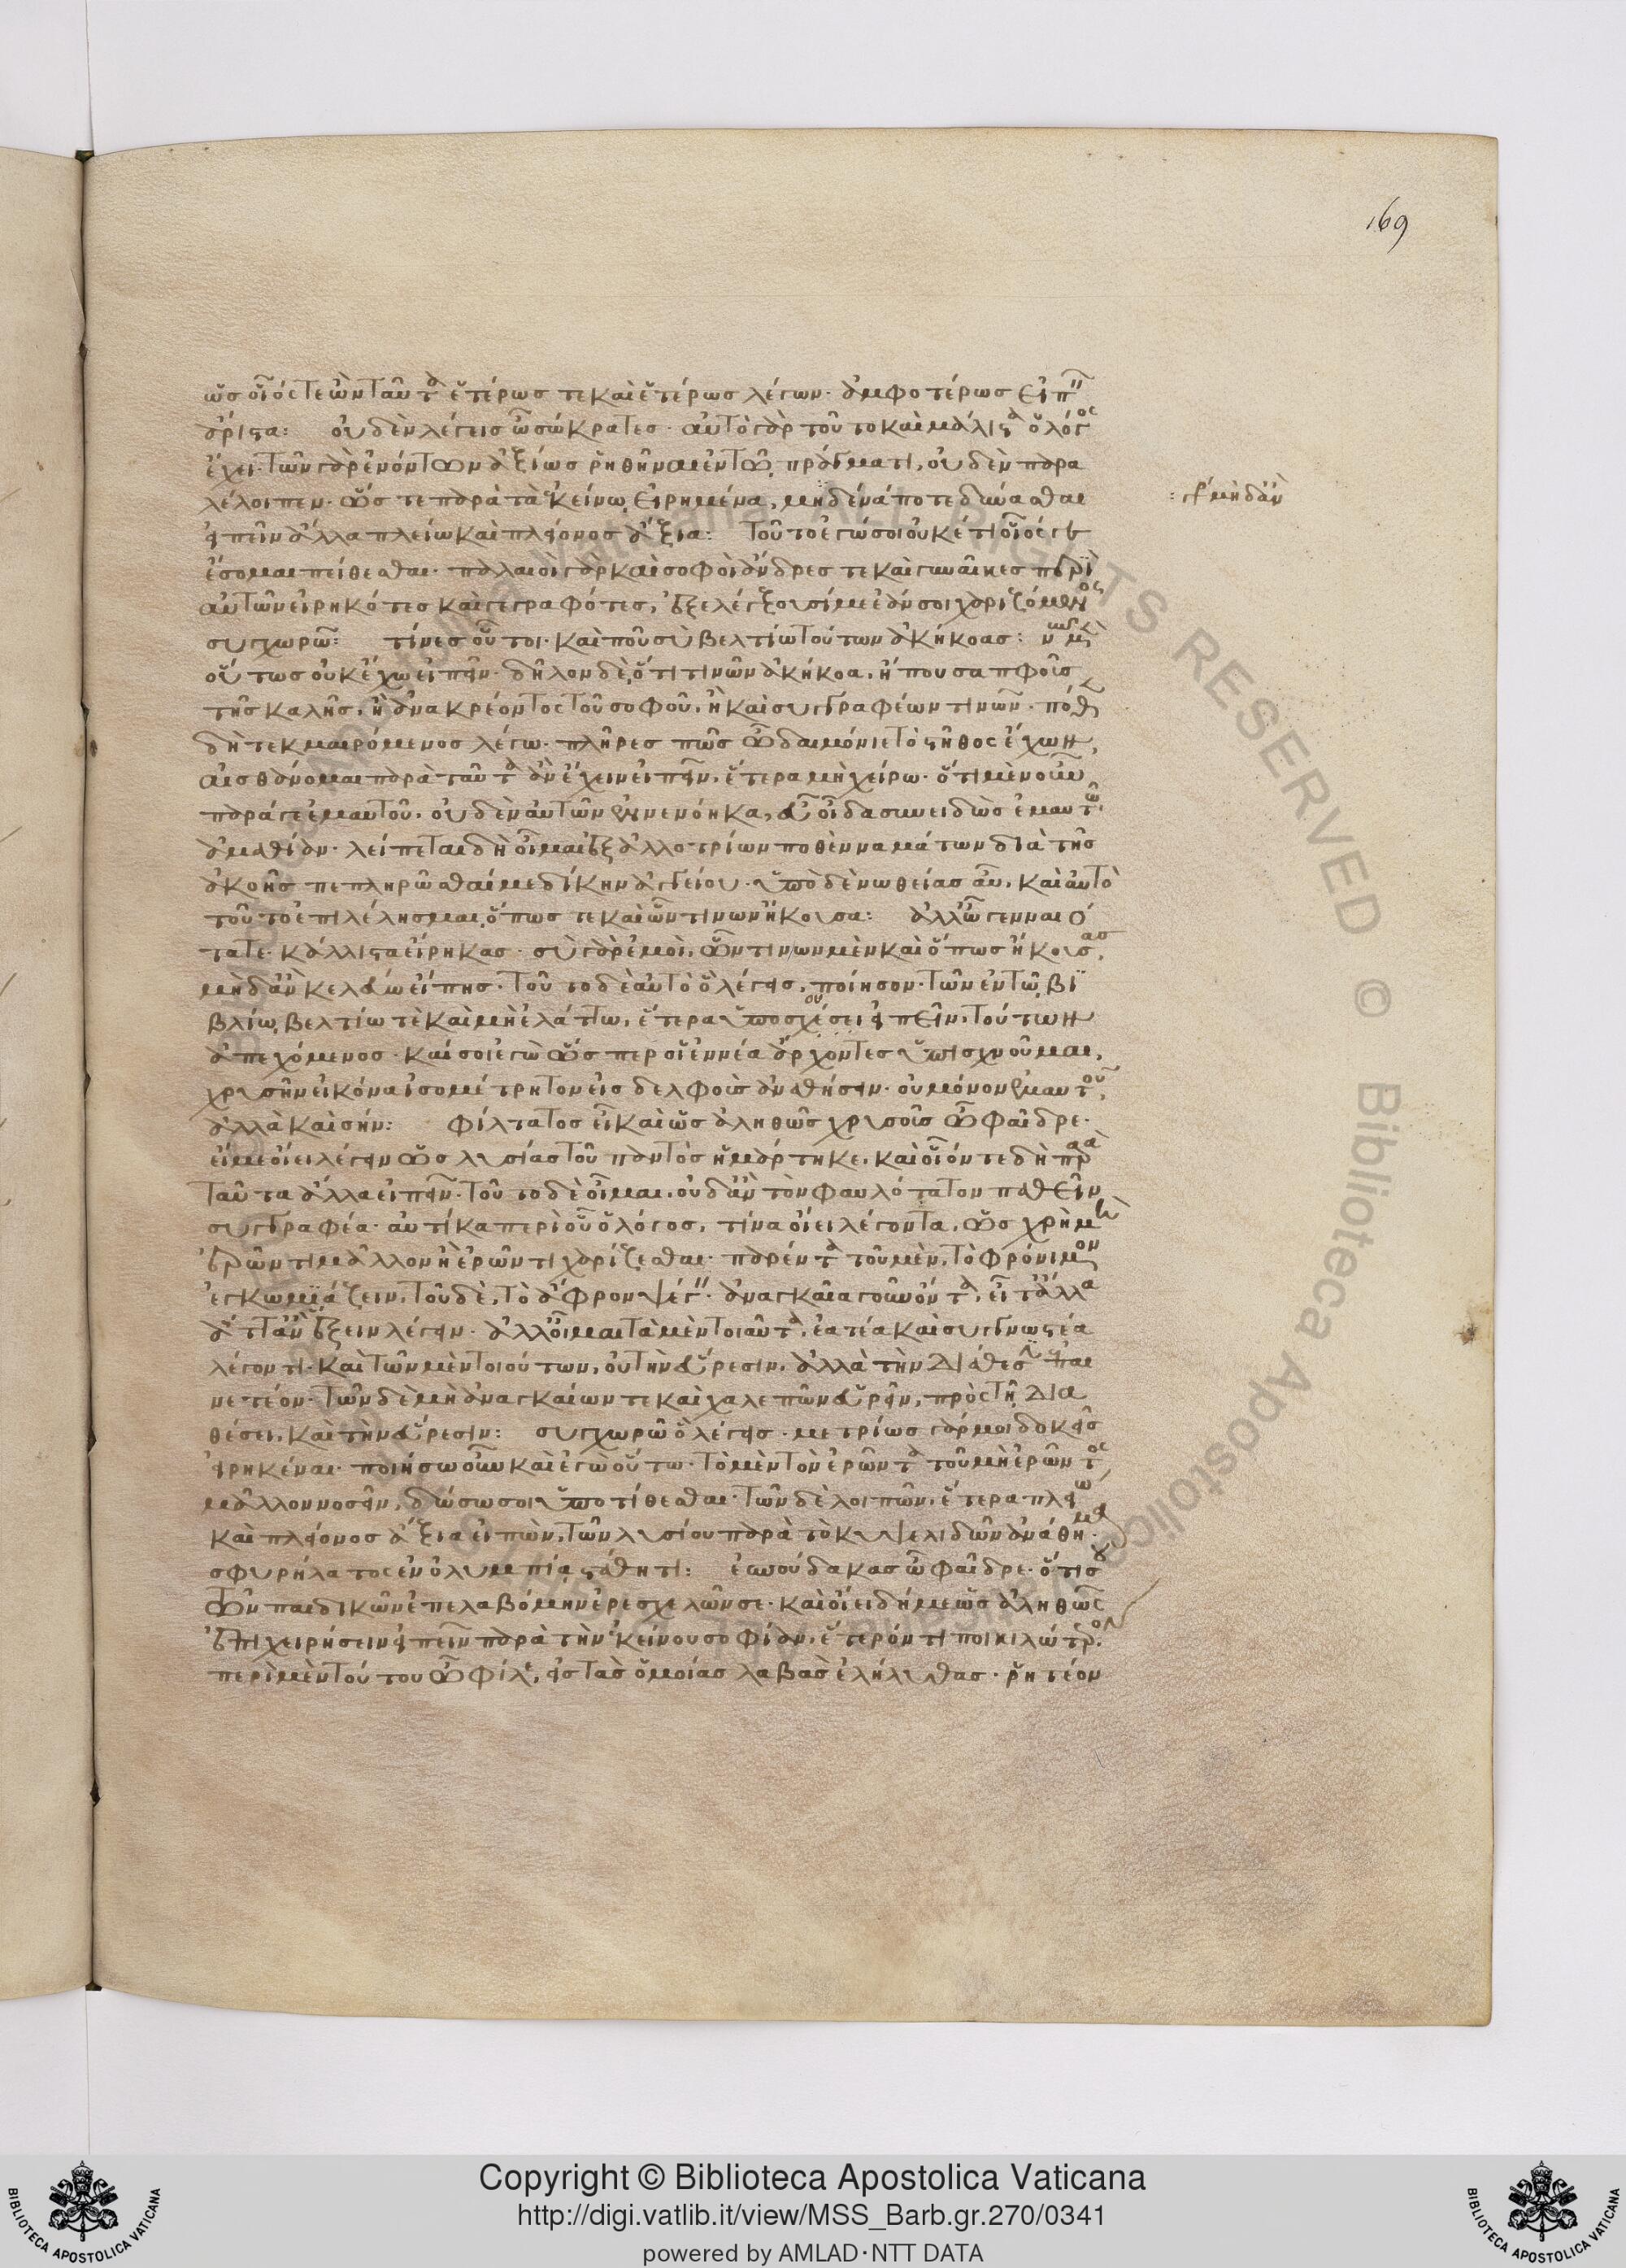 169
ὡς οἷός τε ὢν ταῦτα ἑτέρως τε καὶ ἑτέρως λέγων· ἀμφοτέρως εἰπεῖν
ἄριστα: οὐδὲν λέγεις ὦ σώκρατες· αὐτὸ γὰρ τοῦτο καὶ μάλιστα ὁ λόγος
ἔχει· τῶν γὰρ ἐνόντων ἀξίως ῥηθῆναι ἐν τῶ πράγματι, οὐδὲν παρα
λέλοιπεν· ὥς τε παρὰ τὰ ἐκείνω εἰρημένα, μηδένά ποτε δύνασθαι
: γρ μηδ' ἂν
εἰπεῖν ἄλλα πλείω καὶ πλείονος ἄξια: τοῦτο ἐγώ σοι οὐκέτι οἷός τε
ἔσομαι πείθεσθαι· παλαιοὶ γὰρ καὶ σοφοὶ ἄνδρες τε καὶ γυναῖκες περὶ
αὐτῶν εἰρηκότες καὶ γεγραφότες, ἐξελέγξουσί με ἐάν σοι χαριζόμενος
συγχωρῶ: τίνες οὗτοι· καὶ ποῦ σὺ βελτίω τούτων ἀκήκοας: νῦν μὲν
οὕτως οὐκ ἔχω εἰπεῖν· δῆλον δὲ, ὅτι τινῶν ἀκήκοα, ἤ που σαπφοῦς
τῆς καλῆς, ἢ ἀνακρέοντος τοῦ σοφοῦ, ἢ καὶ συγγραφέων τινῶν· πόθεν
δὴ τεκμαιρόμενος λέγω· πλῆρές πως ὦ δαιμόνιε τὸ στῆθος ἔχων,
αἰσθάνομαι παρὰ ταῦτα ἂν ἔχειν εἰπεῖν, ἕτερα μὴ χείρω· ὅτι μὲν οὖν
παρά γε ἐμαυτοῦ, οὐδὲν αὐτῶν ἐννενόηκα, εὖ οἶδα συνειδὼς ἐμαυτῶ
ἀμαθίαν· λείπεται δὴ οἶμαι ἐξ ἀλλοτρίων ποθὲν ναμάτων διὰ τῆς
ἀκοῆς πεπληρῶσθαί με δίκην ἀγγείου· ὑπὸ δὲ νωθείας αὖ, καὶ αὐτὸ
τοῦτο ἐπιλέλησμαι, ὅπως τε καὶ ὧν τινων ἤκουσα: ἀλλ' ὦ γενναιό
τατε· κάλλιστα εἴρηκας· σὺ γὰρ ἐμοὶ, ὧν τινων μὲν καὶ ὅπως ἤκουσας,
μηδ' ἂν κελεύω εἴπης· τοῦτο δὲ αὐτὸ ὃ λέγεις, ποίησον· τῶν ἐν τῶ βι
βλίω, βελτίω τὲ καὶ μὴ ἐλάττω, ἕτερα ὑποσχέσει εἰπεῖν, τούτων
ἀπεχόμενος· καί σοι ἐγὼ ὥσπερ οἱ ἐννέα ἄρχοντες ὑπισχνοῦμαι,
χρυσῆν εἰκόνα ἰσομέτρητον εἰς δελφοὺς ἀναθήσειν· οὐ μόνον ἐμαυτοῦ,
ἀλλὰ καὶ σήν: φίλτατος εἶ καὶ ὡς ἀληθῶς χρυσοῦς ὦ φαῖδρε·
εἴ με οἴει λέγειν ὡς λυσίας τοῦ παντὸς ἡμάρτηκε, καὶ οἷόν τε δὴ παρὰ
ταῦτα ἄλλα εἰπεῖν· τοῦτο δὲ οἶμαι, οὐδ' ἂν τὸν φαυλότατον παθεῖν
συγγραφέα· αὐτίκα περὶ οὗ ὁ λόγος, τίνα οἴει λέγοντα, ὡς χρὴ μὴ
ἐρῶντι μᾶλλον ἢ ἐρῶντι χαρίζεσθαι· παρέντα τοῦ μὲν, τὸ φρόνιμον
ἐγκωμιάζειν, τοῦ δὲ, τὸ ἄφρον ψέγειν· ἀναγκαῖα γοῦν ὄντα, εἶτ' ἄλλα
ἄττ' ἂν ἕξειν λέγειν· ἀλλ' οἶμαι τὰ μὲν τοιαῦτα, ἐατέα καὶ συγγνωστέα
λέγοντι· καὶ τῶν μὲν τοιούτων, οὐ τὴν εὕρεσιν, ἀλλὰ τὴν διάθεσιν ἐπαι
νετέον· τῶν δὲ μὴ ἀναγκαίων τε καὶ χαλεπῶν εὑρεῖν, πρὸς τῆ δια
θέσει, καὶ τὴν εὕρεσιν: συγχωρῶ ὃ λέγεις· μετρίως γάρ μοι δοκεῖς
εἰρηκέναι· ποιήσω οὖν καὶ ἐγὼ οὕτω· τὸ μὲν τὸν ἐρῶντα τοῦ μὴ ἐρῶντος
μᾶλλον νοσεῖν, δώσω σοι ὑποτίθεσθαι· τῶν δὲ λοιπῶν, ἕτερα πλείω
καὶ πλείονος ἄξια εἰπὼν, τῶν λυσίου παρὰ τὸ κυψελιδῶν ἀνάθημα
σφυρήλατος ἐν ὀλυμπία στάθητι: ἐσπούδακας ὦ φαῖδρε· ὅτι σου
τῶν παιδικῶν ἐπελαβόμην ἐρεσχελῶν σε· καὶ οἴει δή με ὡς ἀληθῶς
ἐπιχειρήσειν εἰπεῖν παρὰ τὴν ἐκείνου σοφίαν, ἕτερόν τι ποικιλώτερον
περὶ μὲν τούτου ὦ φίλε, εἰς τὰς ὁμοίας λαβὰς ἐλήλυθας· ῥητέον
Copyright © Biblioteca Apostolica Vaticana
http://digi.vatlib.it/view/MSS_Barb.gr.270/0341
powered by AMLAD·NTT DATA